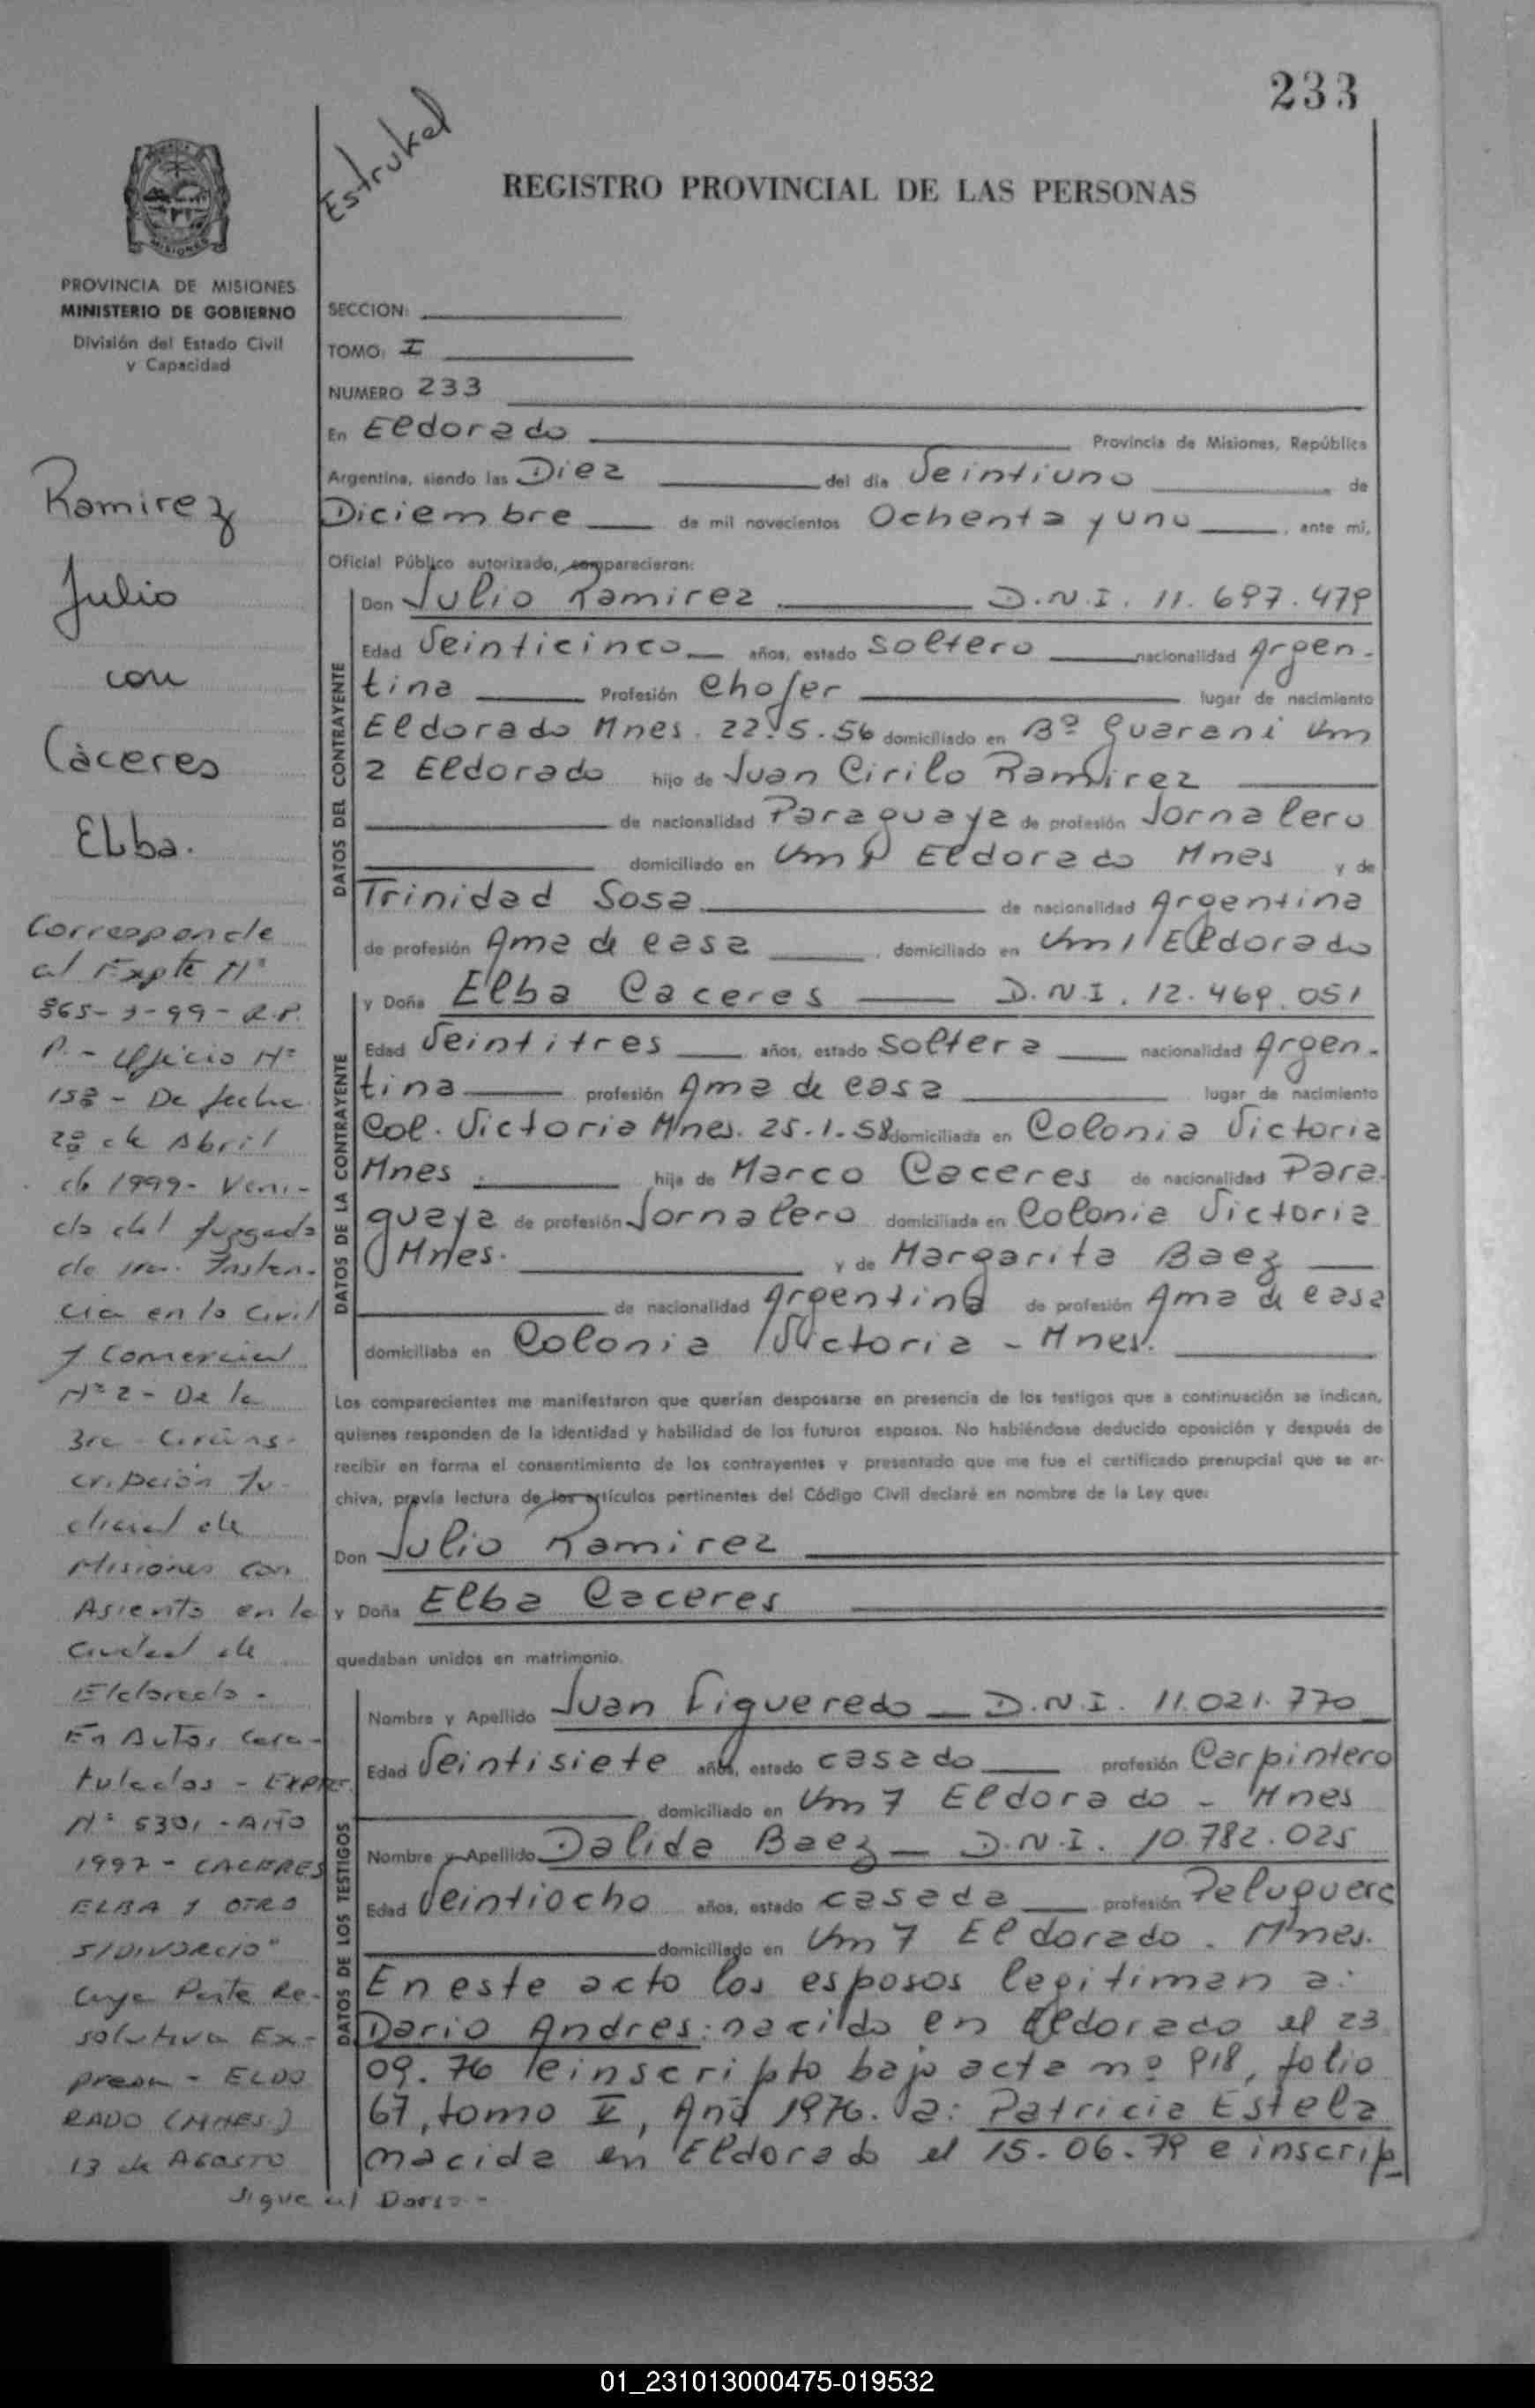 233
Estrukel
REGISTRO PROVINCIAL DE LAS PERSONAS
MISIONES
PROVINCIA DE MISIONES
MINISTERIO DE GOBIERNO
División del Estado Civil
y Capacidad
SECCION:
TOMO: I
NUMERO 233
En Eldorado Provincia de Misiones, República
Argentina, siendo las Diez del día Veintiuno de
Diciembre de mil novecientos Ochenta y uno, ante mi,
Oficial Público autorizado, comparecieron:
DATOS DEL CONTRAYENTE
Don Julio Ramirez D.N.I. 11.697.479
Edad Veinticinco años, estado soltero nacionalidad Argen-
tina Profesión Chofer lugar de nacimiento
Eldorado Mnes. 22.5.56 domiciliado en Bº Guarani Km
2 Eldorado hijo de Juan Cirilo Ramirez
de nacionalidad Paraguaya de profesión Jornalero
domiciliado en Km Eldorado Mnes y de
Trinidad Sosa de nacionalidad Argentina
de profesión Ama de casa, domiciliado en Km 1 Eldorado
DATOS DE LA CONTRAYENTE
y Doña Elba Caceres D.N.I. 12.469.051
Edad Veintitres años, estado soltera nacionalidad Argen-
tina profesión Ama de casa lugar de nacimiento
Col. Victoria Mnes. 25.1.58 domiciliada en Colonia Victoria
Mnes. hija de Marco Caceres de nacionalidad Para-
guaya de profesión Jornalero domiciliada en Colonia Victoria
Mnes. y de Margarita Baez
de nacionalidad Argentina de profesión Ama de casa
domiciliaba en Colonia Victoria - Mnes.
Los comparecientes me manifestaron que querían desposarse en presencia de los testigos que a continuación se indican,
quienes responden de la identidad y habilidad de los futuros esposos. No habiéndose deducido oposición y después de
recibir en forma el consentimiento de los contrayentes y presentado que me fue el certificado prenupcial que se ar-
chiva, previa lectura de los artículos pertinentes del Código Civil declaré en nombre de la Ley que:
Don Julio Ramirez
y Doña Elba Caceres
quedaban unidos en matrimonio.
DATOS DE LOS TESTIGOS
Nombre y Apellido Juan Figueredo D.N.I. 11.021.770
Edad Veintisiete años, estado casado profesión Carpintero
domiciliado en Km 7 Eldorado - Mnes
Nombre y Apellido Dalida Baez D.N.I. 10.782.025
Edad Veintiocho años, estado casada profesión Peluquera
domiciliado en Km 7 Eldorado. Mnes.
En este acto los esposos legitiman a:
Dario Andres: nacido en Eldorado el 23
09.76 e inscripto bajo acta nº 918, folio
67, tomo V, Año 1976. a: Patricia Estela
nacida en Eldorado el 15-06-79 e inscrip
Ramirez
Julio
con
Càceres
Elba.
Corresponde
al Expte Nº
865- -99- R.P.
P. - Oficio Nº
158 - De fecha
28 de Abril
de 1999 - Veni-
do del Juzgado
de 1ra. Instan-
cia en lo Civil
y Comercial
Nº 2 - De la
3ra - Circuns-
cripción Ju-
dicial de
Misiones con
Asiento en la
Ciudad de
Eldorado -
En Autos Cara-
tulados - EXPTE.
Nº 5301 - AÑO
1997 - CACERES
ELBA Y OTRO
S/DIVORCIO"
Cuya Parte Re-
solutiva Ex-
presa - ELDO
RADO (MNES.)
13 de AGOSTO
Sigue al Dorso -
01_231013000475-019532